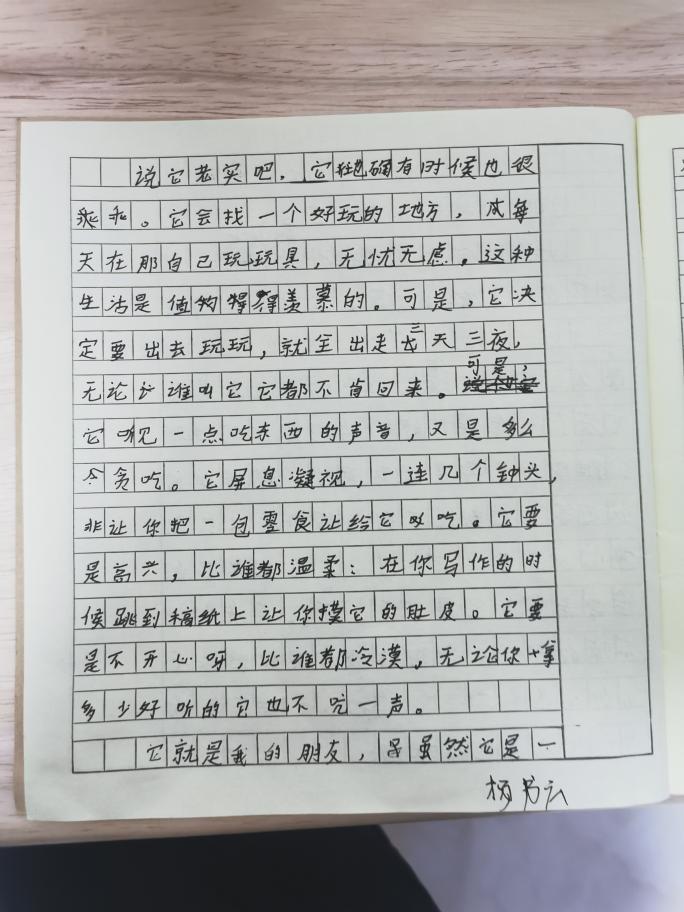 说它老实吧，它的确有时候也很
乖乖。它会找一个好玩的地方，成每
天在那自己玩玩具，无忧无虑。这种
生活是值得羡慕的。可是，它决
定要出去玩玩，就全出走三天三夜，
无论谁叫它它都不肯回来。可是，
它听见一点吃东西的声音，又是多么
贪吃。它屏息凝视，一连几个钟头，
非让你把一包零食让给它吃。它要
是高兴，比谁都温柔：在你写作的时
候跳到稿纸上让你摸它的肚皮。它要
是不开心呀，比谁都冷漠，无论你
多少好听的它也不吭一声。
它就是我的朋友，虽然它是一
杨书云